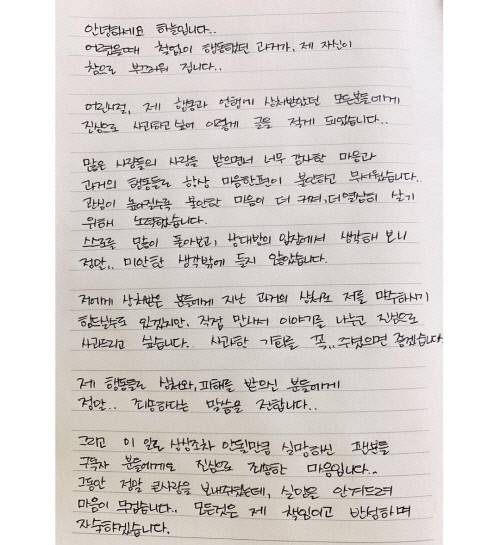 안녕하세요 하늘입니다..
어렸을때 철없이 행동했던 과거가, 제 자신이
참으로 부끄러워 집니다..
어린시절, 제 행동과 언행에 상처받았던 모든분들에게
진심으로 사과하고 싶어 이렇게 글을 적게 되었습니다..
많은 사람들의 사랑을 받으면서 너무 감사한 마음과
과거의 행동들로 항상 마음한편이 불안하고 무서웠습니다..
관심이 높아질수록 불안한 마음이 더 커져, 더 열심히 살기
위해 노력했습니다.
스스로를 많이 돌아보고, 상대방의 입장에서 생각해 보니
정말.. 미안한 생각밖에 들지 않았습니다.
저에게 상처받은 분들에게 지난 과거의 상처로 저를 마주하시기
힘드실수도 있겠지만, 직접 만나서 이야기를 나누고 진심으로
사과드리고 싶습니다. 사과할 기회를 꼭.. 주셨으면 좋겠습니다
제 행동들로 상처와, 피해를 받으신 분들에게
정말.. 죄송하다는 말씀을 전합니다..
그리고 이 일로 상상조차 안될만큼 실망하신 팬분들
구독자 분들에게도 진심으로 죄송한 마음입니다..
그동안 정말 큰사랑을 보내주셨는데, 실망을 안겨드려
마음이 무겁습니다.. 모든것은 제 책임이고 반성하며
자숙하겠습니다.